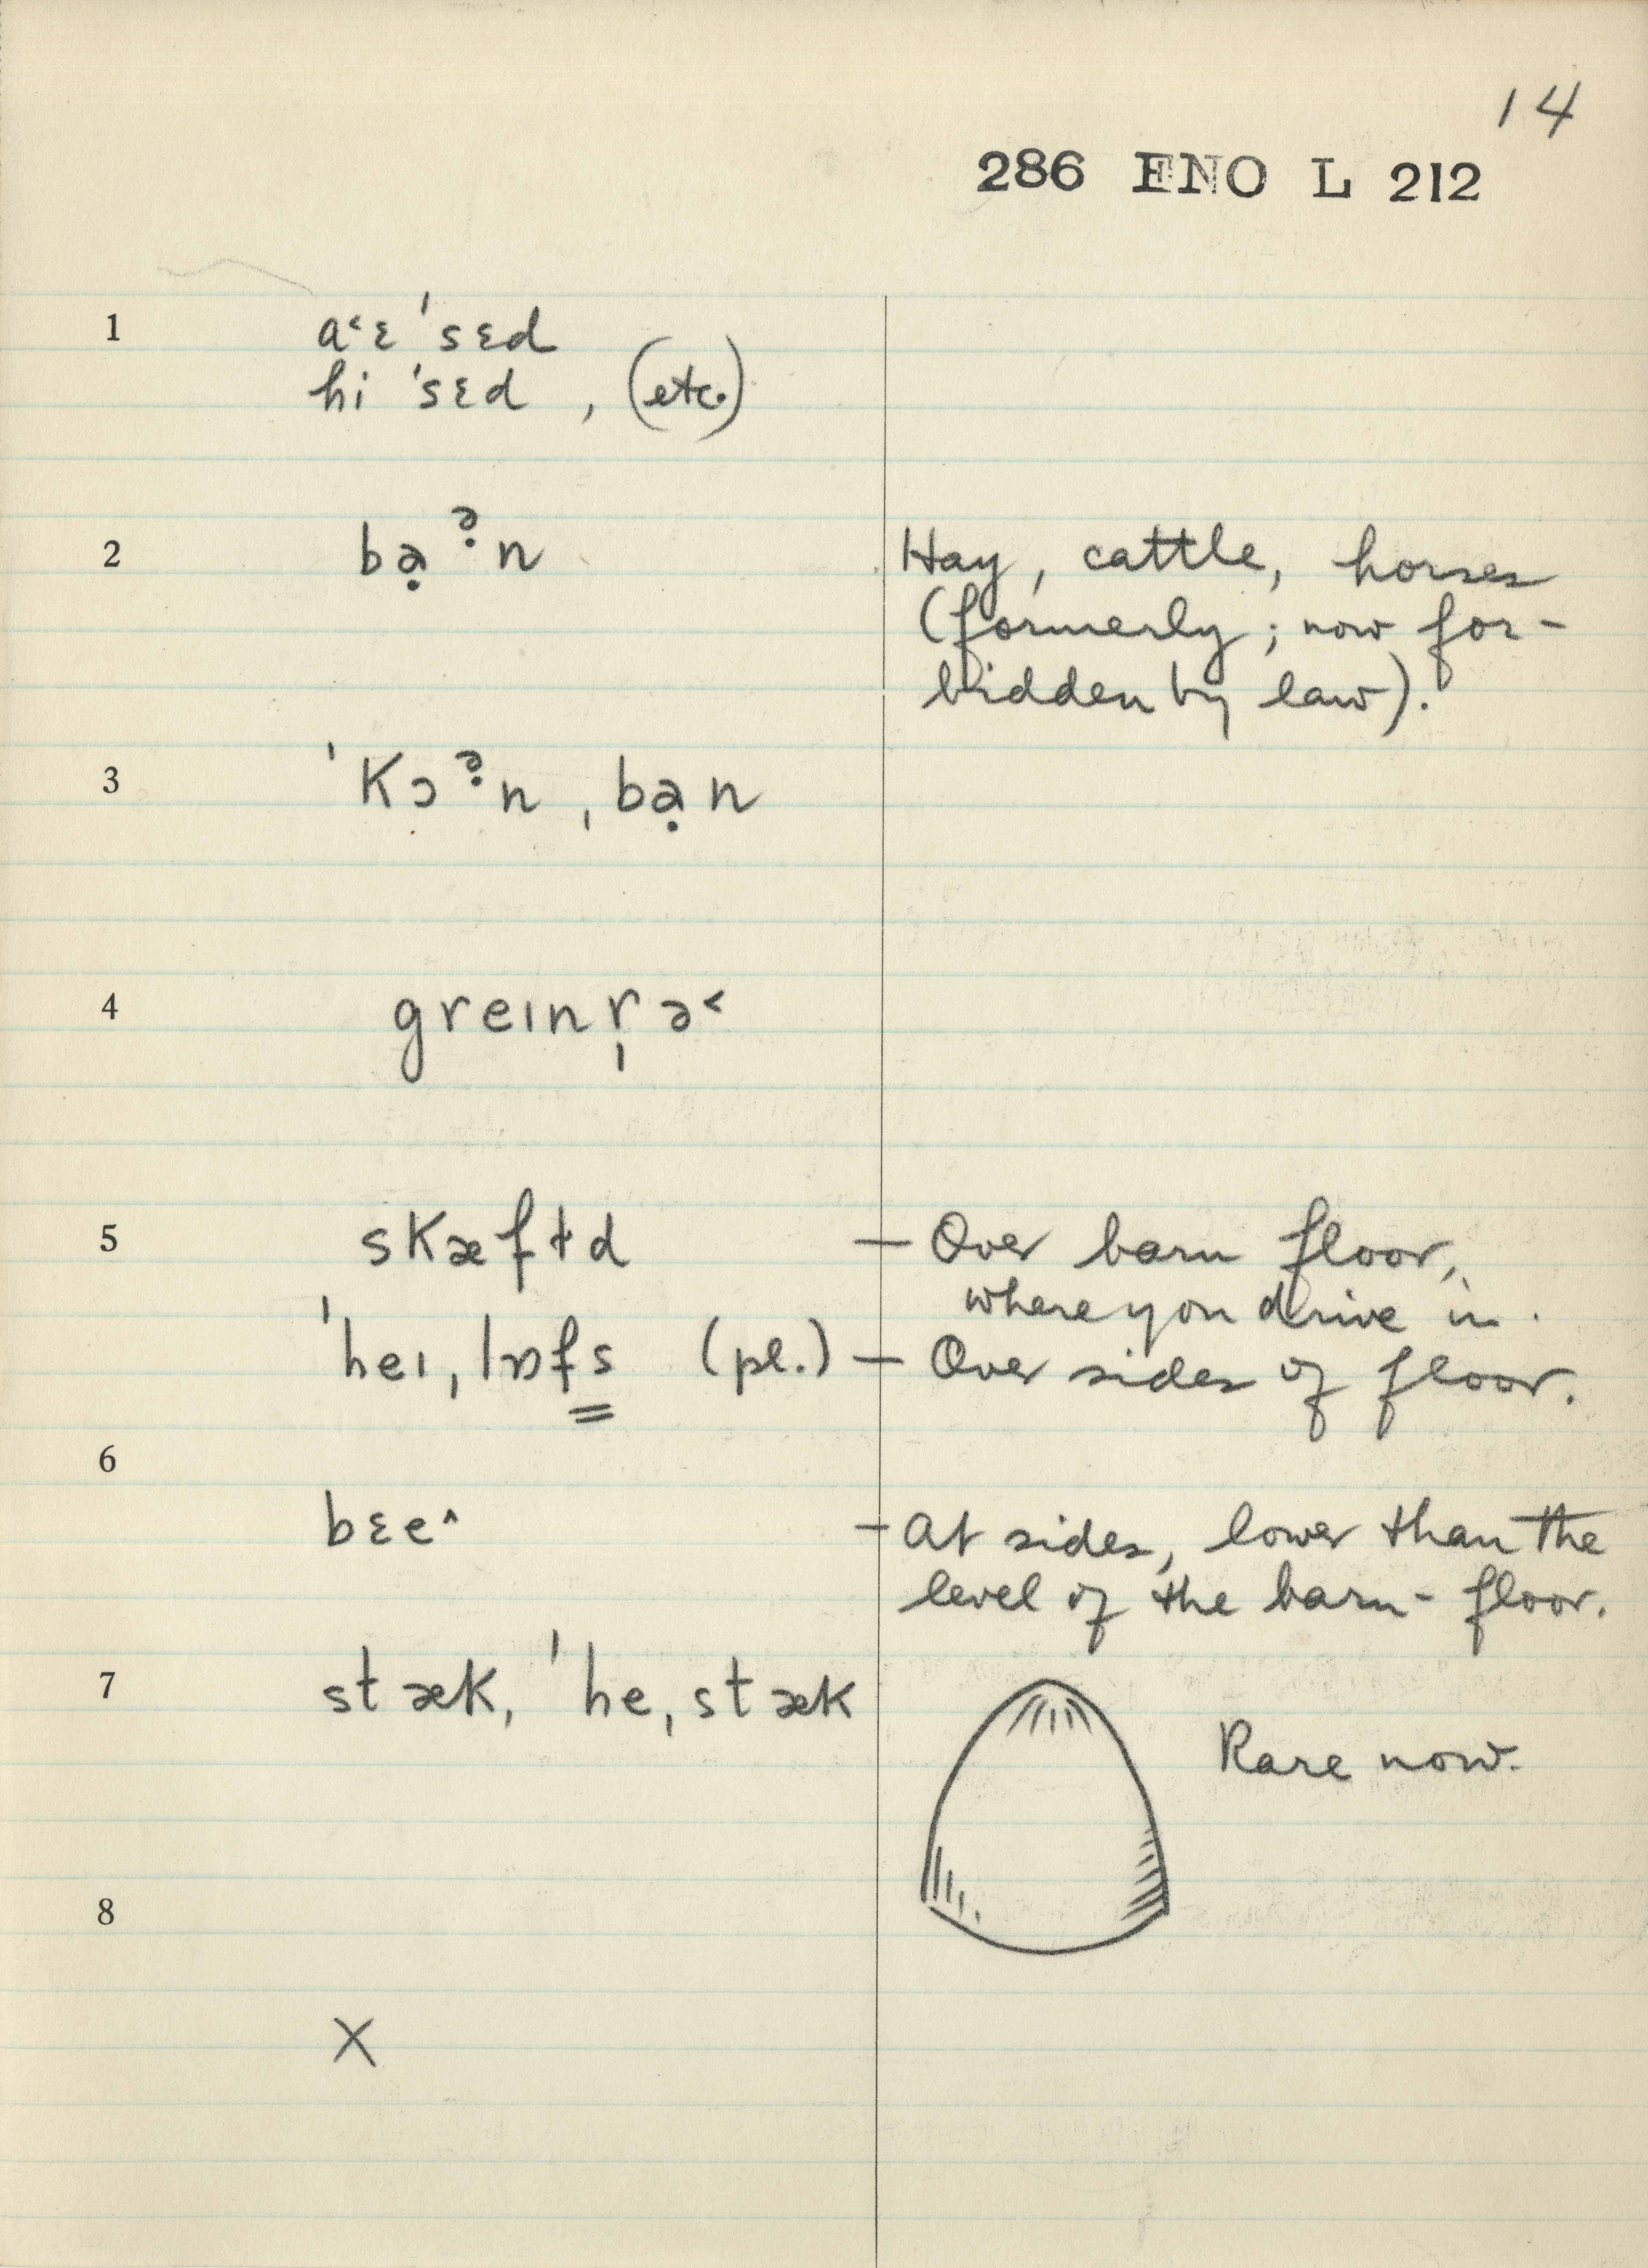 14
286 ENO L 212
1 a˂ɛ ˈsɛd
hi ˈsɛd , (etc.)
2 bạᵊ̣n Hay, cattle, horses
(formerly ; now for-
bidden by law).
3 ˈkɔᵊ̣n ˌbạn
4 greɪnr̩ə˂
5 skæfɨd — Over barn floor,
where you drive in.
ˈheɪˌlɒfs (pl.) — Over sides of floor.
6
bɛe^ — At sides, lower than the
level of the barn-floor.
7 stæk, ˈheˌstæk
Rare now.
8
X